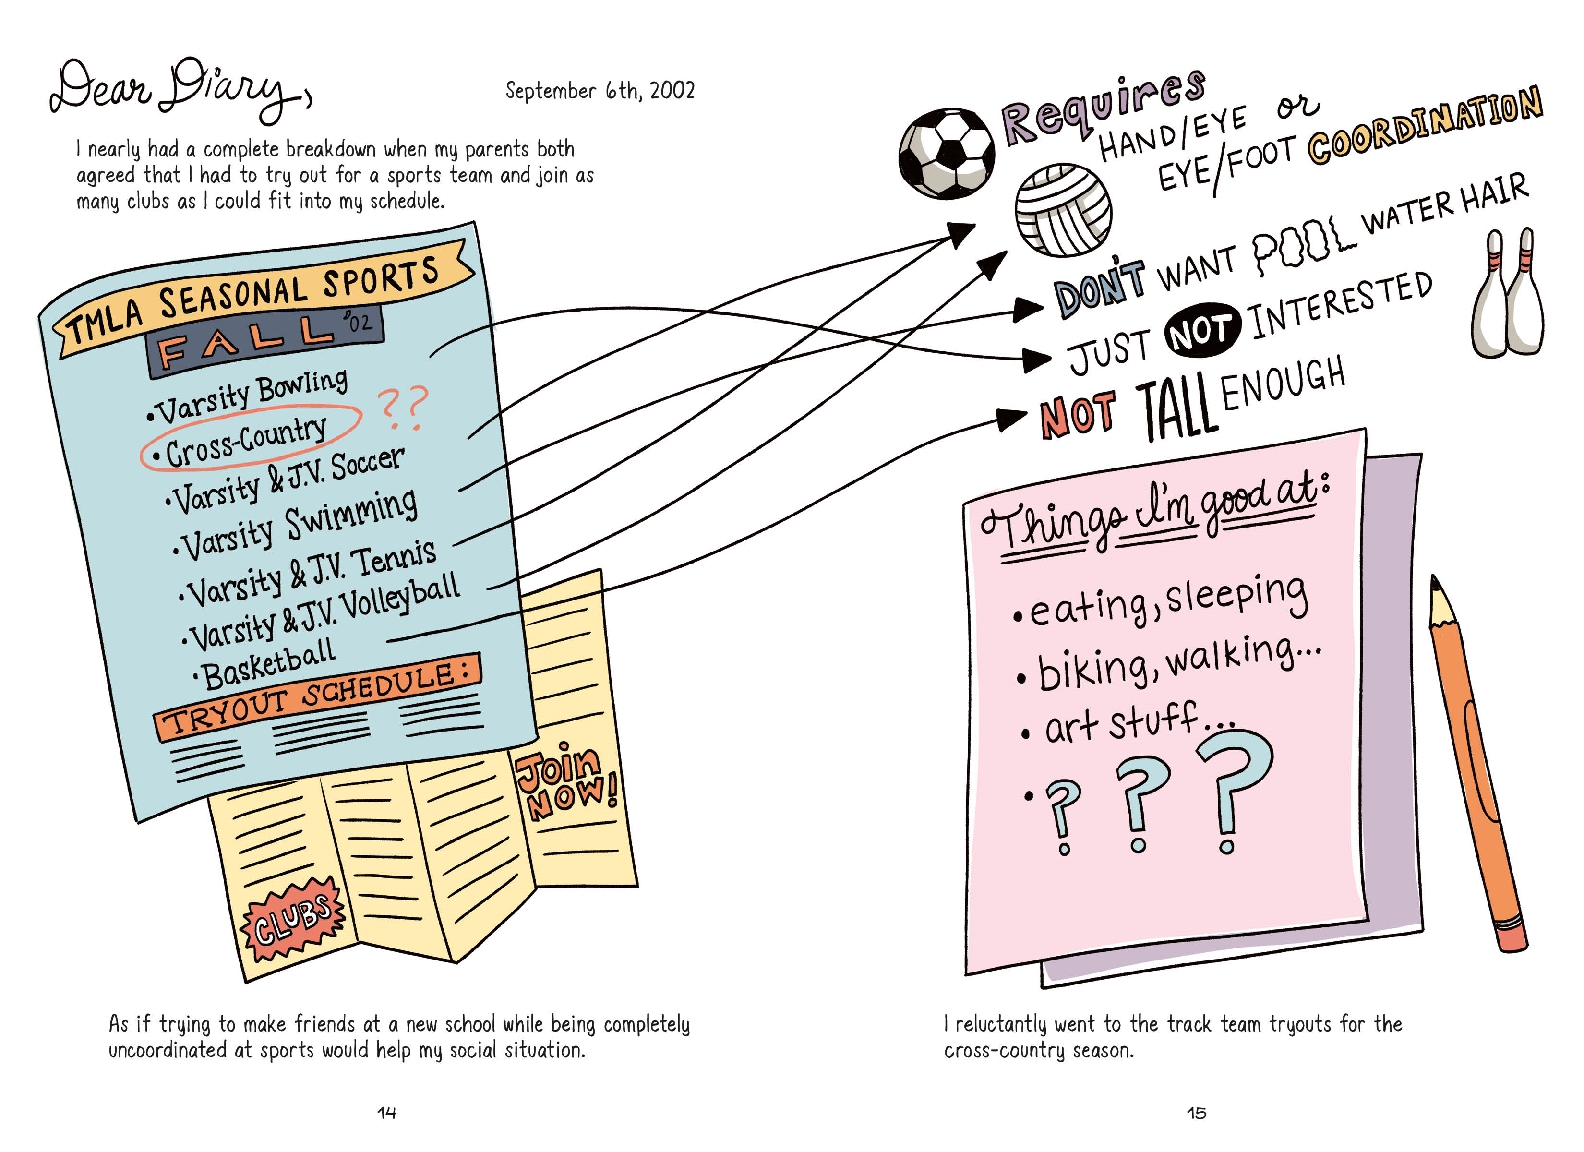 Dear Diary,
September 6th, 2002
I nearly had a complete breakdown when my parents both
agreed that I had to try out for a sports team and join as
many clubs as I could fit into my schedule.
TMLA SEASONAL SPORTS
FALL '02
•Varsity Bowling
•Cross-Country ??
•Varsity & J.V. Soccer
•Varsity Swimming
•Varsity & J.V. Tennis
•Varsity & J.V. Volleyball
•Basketball
TRYOUT SCHEDULE:
JOIN
NOW!
CLUBS
As if trying to make friends at a new school while being completely
uncoordinated at sports would help my social situation.
14
Requires
HAND/EYE or
EYE/FOOT COORDINATION
DON'T WANT POOL WATER HAIR
JUST NOT INTERESTED
NOT TALL ENOUGH
Things I'm good at:
• eating, sleeping
• biking, walking...
• art stuff...
• ? ? ?
I reluctantly went to the track team tryouts for the
cross-country season.
15